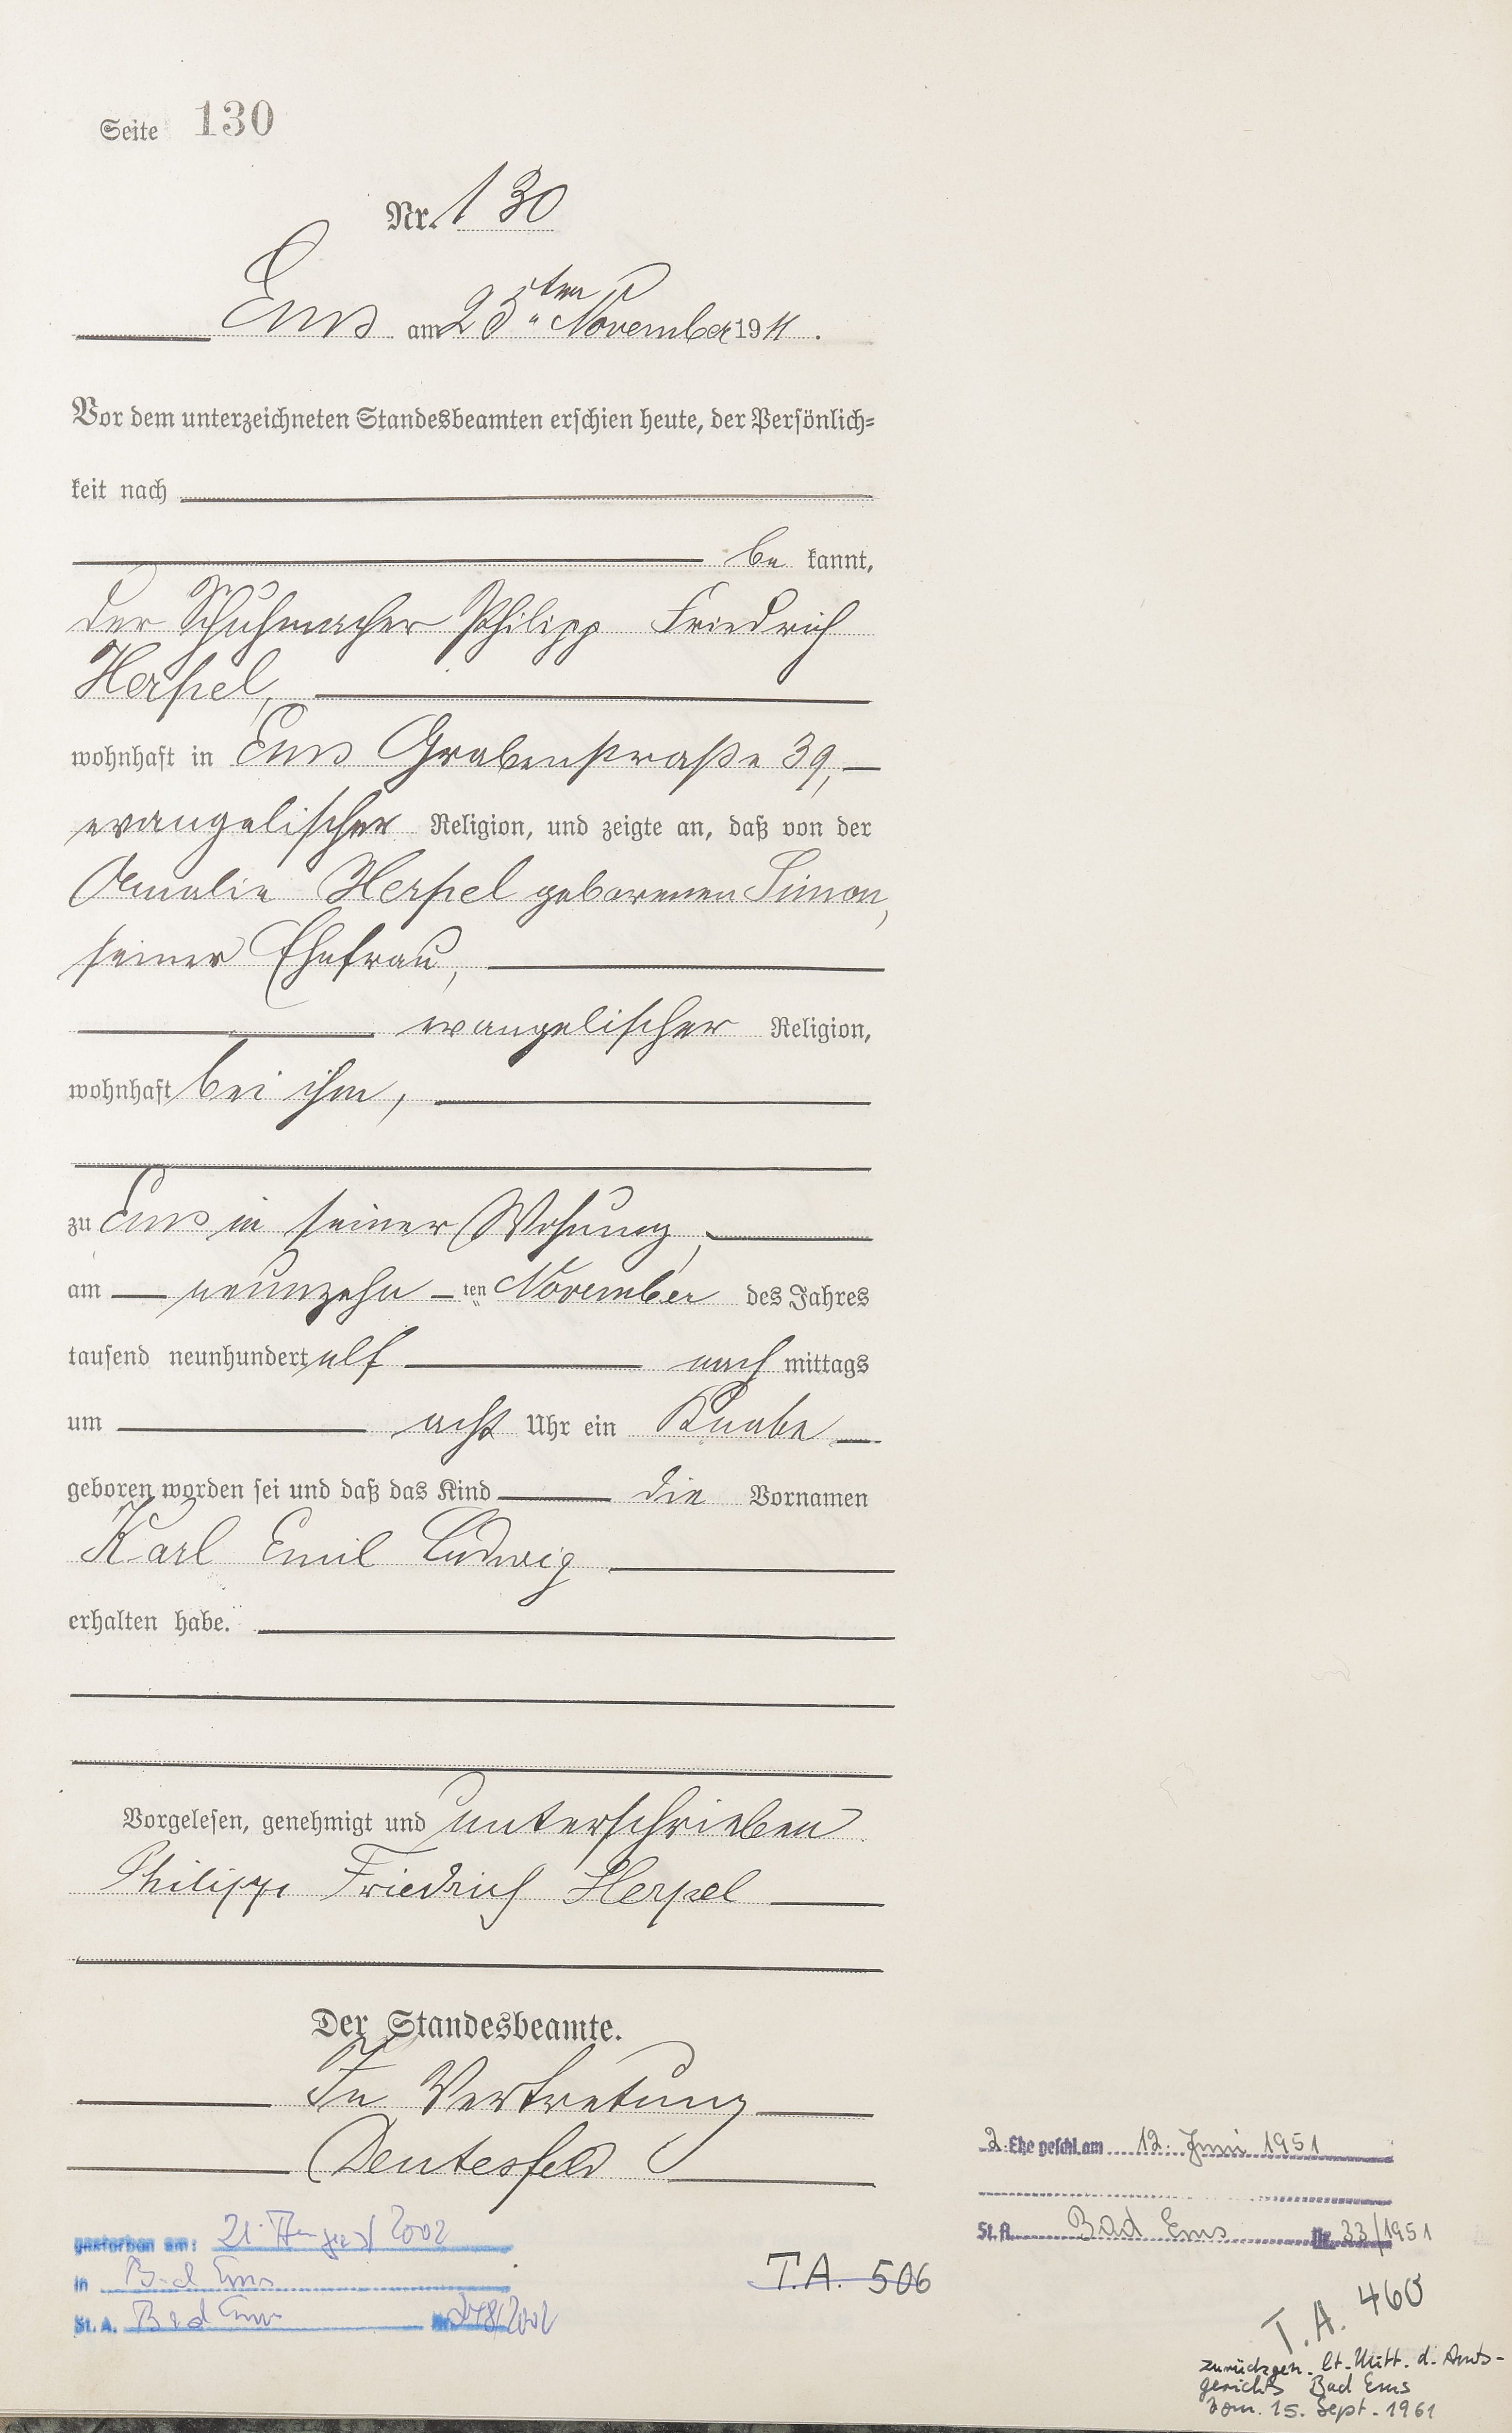 Seite 130
Nr. 130
Ems am 25ten November 1911.
Vor dem unterzeichneten Standesbeamten erschien heute, der Persönlich=
keit nach
be kannt,
der Schuhmacher Philipp Friedrich
Herpel,
wohnhaft in Ems Grabenstraße 39,
evangelischer Religion, und zeigte an, daß von der
Amalie Herpel geborenen Simon,
seiner Ehefrau,
evangelischer Religion,
wohnhaft bei ihm,
zu Ems in seiner Wohnung,
am neunzehn ten November des Jahres
tausend neunhundert elf nach mittags
um acht Uhr ein Knabe
geboren worden sei und daß das Kind die Vornamen
Karl Emil Ludwig
erhalten habe.
Vorgelesen, genehmigt und unterschrieben
Philipp Friedrich Herpel
Der Standesbeamte.
In Vertretung
Deutesfeld
2. Ehe geschl. am 12. Juni 1951
St. A. Bad Ems Nr. 33/1951
gestorben am: 21. August 2002
in Bad Ems
St. A. Bad Ems Nr. 248/2002
T.A. 506
T.A. 460
zurückgen. lt. Mitt. d. Amts-
gerichts Bad Ems
vom 15. Sept. 1961